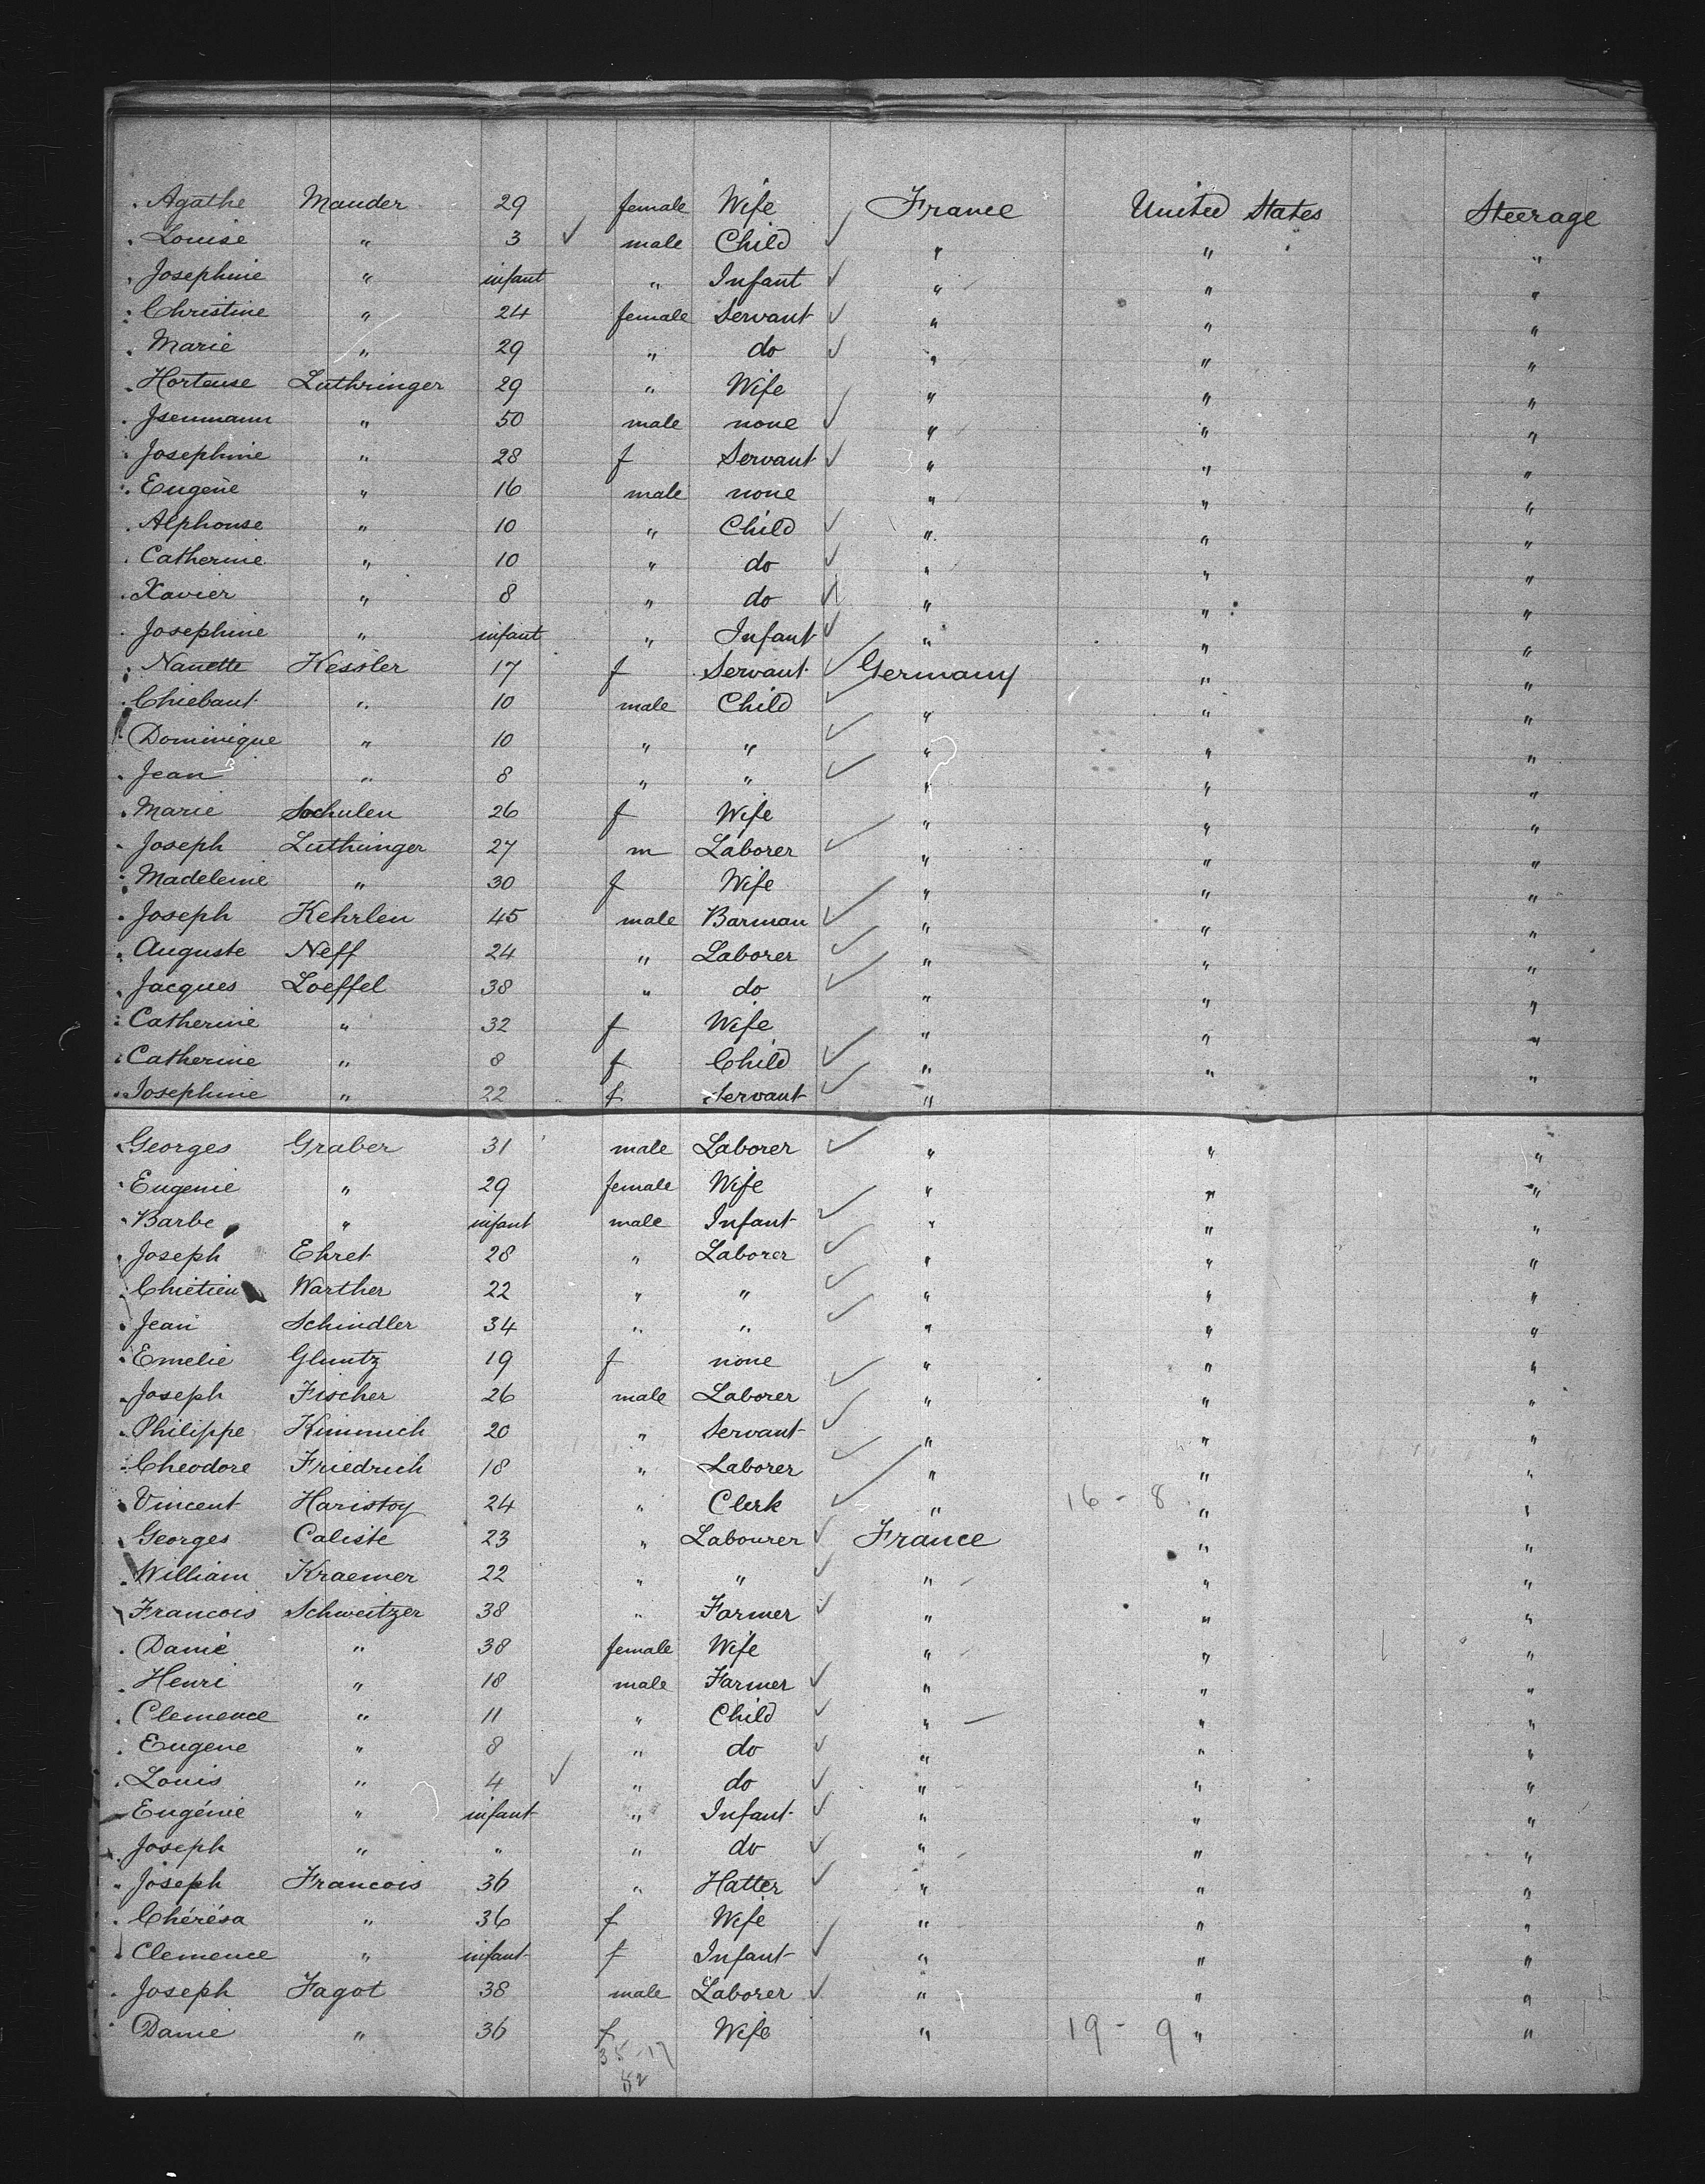 Agathe Mauder 29 female Wife France United States Steerage
Louise " 3 ✓ male Child ✓ " " "
Josephine " infant " Infant ✓ " " "
Christine " 24 female Servant ✓ " " "
Marie " 29 " do ✓ " " "
Hortense Luthringer 29 " Wife " " "
Isenmann " 50 male none ✓ " " "
Josephine " 28 f Servant ✓ " " "
Eugene " 16 male none " " "
Alphonse " 10 " Child ✓ " " "
Catherine " 10 " do ✓ " " "
Xavier " 8 " do ✓ " " "
Josephine " infant " Infant ✓ " " "
Nanette Kessler 17 f Servant ✓ Germany " "
Chiebaut " 10 male Child ✓ " " "
Dominique " 10 " " ✓ " " "
Jean " 8 " " ✓ " " "
Marie Sochulen 26 f Wife " " "
Joseph Luthringer 27 m Laborer ✓ " " "
Madeleine " 30 f Wife " " "
Joseph Kehrlen 45 male Barman ✓ " " "
Auguste Neff 24 " Laborer ✓ " " "
Jacques Loeffel 38 " do ✓ " " "
Catherine " 32 f Wife " " "
Catherine " 8 f Child ✓ " " "
Josephine " 22 f Servant ✓ "
Georges Graber 31 male Laborer ✓ " " "
Eugenie " 29 female Wife " " "
Barbe " infant male Infant ✓ " " "
Joseph Ehret 28 " Laborer ✓ " " "
Chietien Warther 22 " " ✓ " " "
Jean Schindler 34 " " ✓ " " "
Emelie Gluntz 19 f none " " "
Joseph Fischer 26 male Laborer ✓ " " "
Philippe Kimmich 20 " Servant ✓ " " "
Theodore Friedrich 18 " Laborer ✓ " " "
Vincent Haristoy 24 " Clerk ✓ " 16 - 8 " "
Georges Caliste 23 " Labourer ✓ France " "
William Kraemer 22 " " ✓ " " "
Francois Schweitzer 38 " Farmer ✓ " " "
Danie " 38 female Wife " " "
Henri " 18 male Farmer ✓ " " "
Clemence " 11 " Child ✓ " " "
Eugene " 8 " do ✓ " " "
Louis " 4 ✓ " do ✓ " " "
Eugénie " infant " Infant ✓ " " "
Joseph " " " do ✓ " " "
Joseph Francois 36 " Hatter ✓ " " "
Thérésa " 36 f Wife " " "
Clemence " infant f Infant ✓ " " "
Joseph Fagot 38 male Laborer ✓ " " "
Danie " 36 f Wife " 19 - 9 " "
35-17
52